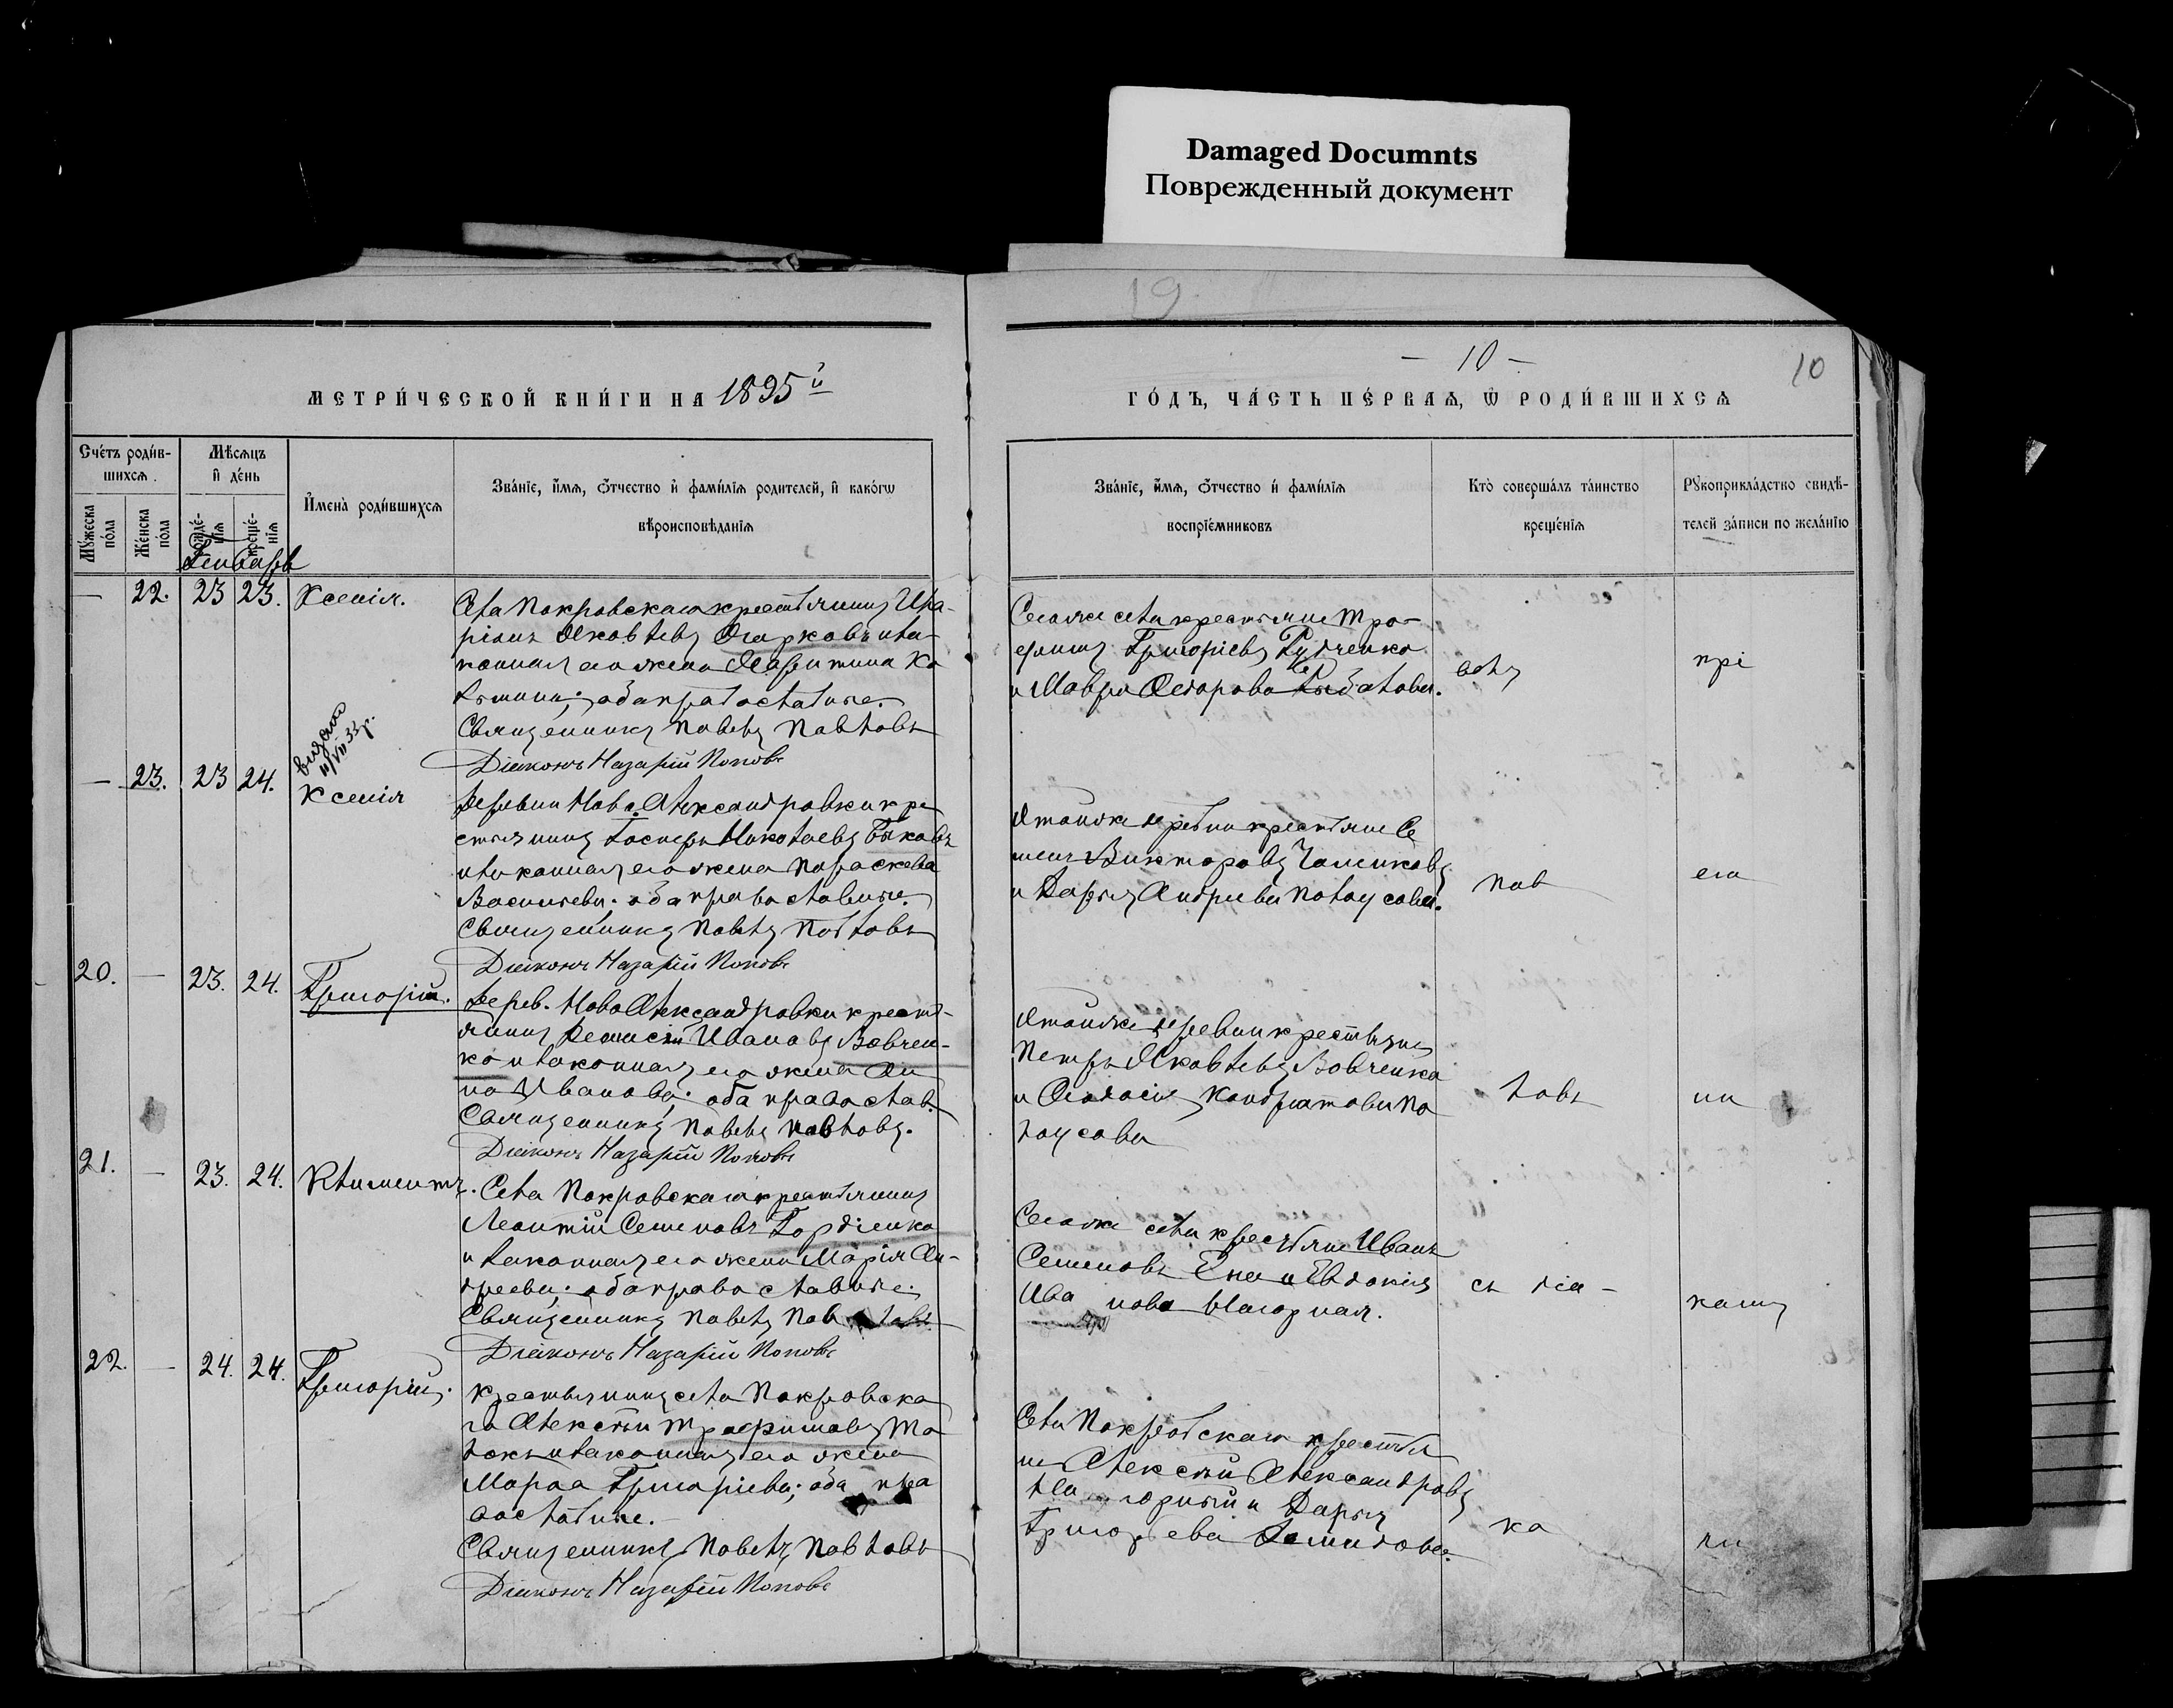 Damaged Documnts
Поврежденный документ
19
МЕТРИ́ЧЕСКОЙ КНИ́ГИ НА 1895й
— 10 —
10
ГО́ДЪ, ЧА́СТЬ ПЕ́РВАѦ, Ѡ РОДИ́ВШИХСѦ
Сче́тъ роди́в-
шихсѧ.
Мѣсѧцъ
и҆ де́нь
И҆мена̀ роди́вшихсѧ
Зва́нїе, и҆́мѧ, ѻ҆́тчество и҆ фами́лїѧ родителей, и҆ како́гѡ
вѣроисповѣ́данїѧ
Му́жеска
по́ла
Же́нска
по́ла
рожде́-
нїѧ
креще́-
нїѧ
Генварь
Зва́нїе, и҆́мѧ, ѻ҆́тчество и҆ фами́лїѧ
воспрїе́мниковъ
Кто̀ соверша́лъ та́инство
креще́нїѧ
Рꙋкоприкла́дство свидѣ́-
телей за́писи по жела́нїю
— 22. 23 23. Ксенія.
Села Покровскаго крестьянинъ Ила-
ріонъ Яковлевъ Огарковъ и за-
конная его жена
оба православные.
Священникъ Павелъ Павловъ
Діаконъ Назарій Поповъ
Тогоже села крестьяне Тро-
фимъ Григорьевъ Рудченко
и Мавра Федорова
прі
выдано
11/VII 33 г.
— 23. 23 24. Ксенія
Деревни Ново Александровки кре
стьянинъ Николаевъ Быковъ
и законная его жена Параскева
Васильева; оба православные.
Священникъ Павелъ Павловъ
Діаконъ Назарій Поповъ
Тойже деревни крестьяне Се
менъ Викторовъ
и Дарья Андреева Полоусова.
Пав
его
20. — 23. 24. Григорій.
Дерев. Ново Александровки кресть-
янинъ Иванавъ Вовчен-
ко и законная его жена Ан
на Иванова; оба православ.
Священникъ Павелъ Павловъ.
Діаконъ Назарій Поповъ
Тойже деревни крестьяне
Петръ Яковлевъ Вовченко
и Кондратова По
лоусова
ловъ
ни
21. — 23. 24. Климентъ.
Села Покровскаго крестьянинъ
Леонтій Семеновъ Гордіенко
и законная его жена Марія Ан-
дреева; оба православные
Священникъ Павелъ Павловъ
Діаконъ Назарій Поповъ
Тогоже села крестьяне Иванъ
Семеновъ и Евдокія
Иванова Нагорная.
съ діа-
комъ
22. — 24. 24. Григорій.
Крестьянинъ села Покровска
го Алексѣй Трофимовъ То
и законная его жена
Марѳа Григорьева; оба пра
вославные.
Священникъ Павелъ Павловъ
Діаконъ Назарій Поповъ
Села Покровскаго крестья
не Алексѣй Александровъ
Нагорный и Дарья
Григорьева Демидова.
ко